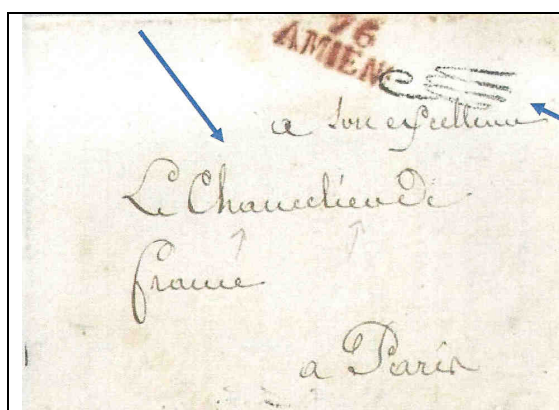 76
AMIENS
a Son excellence
Le Chancelier De
france
a Paris